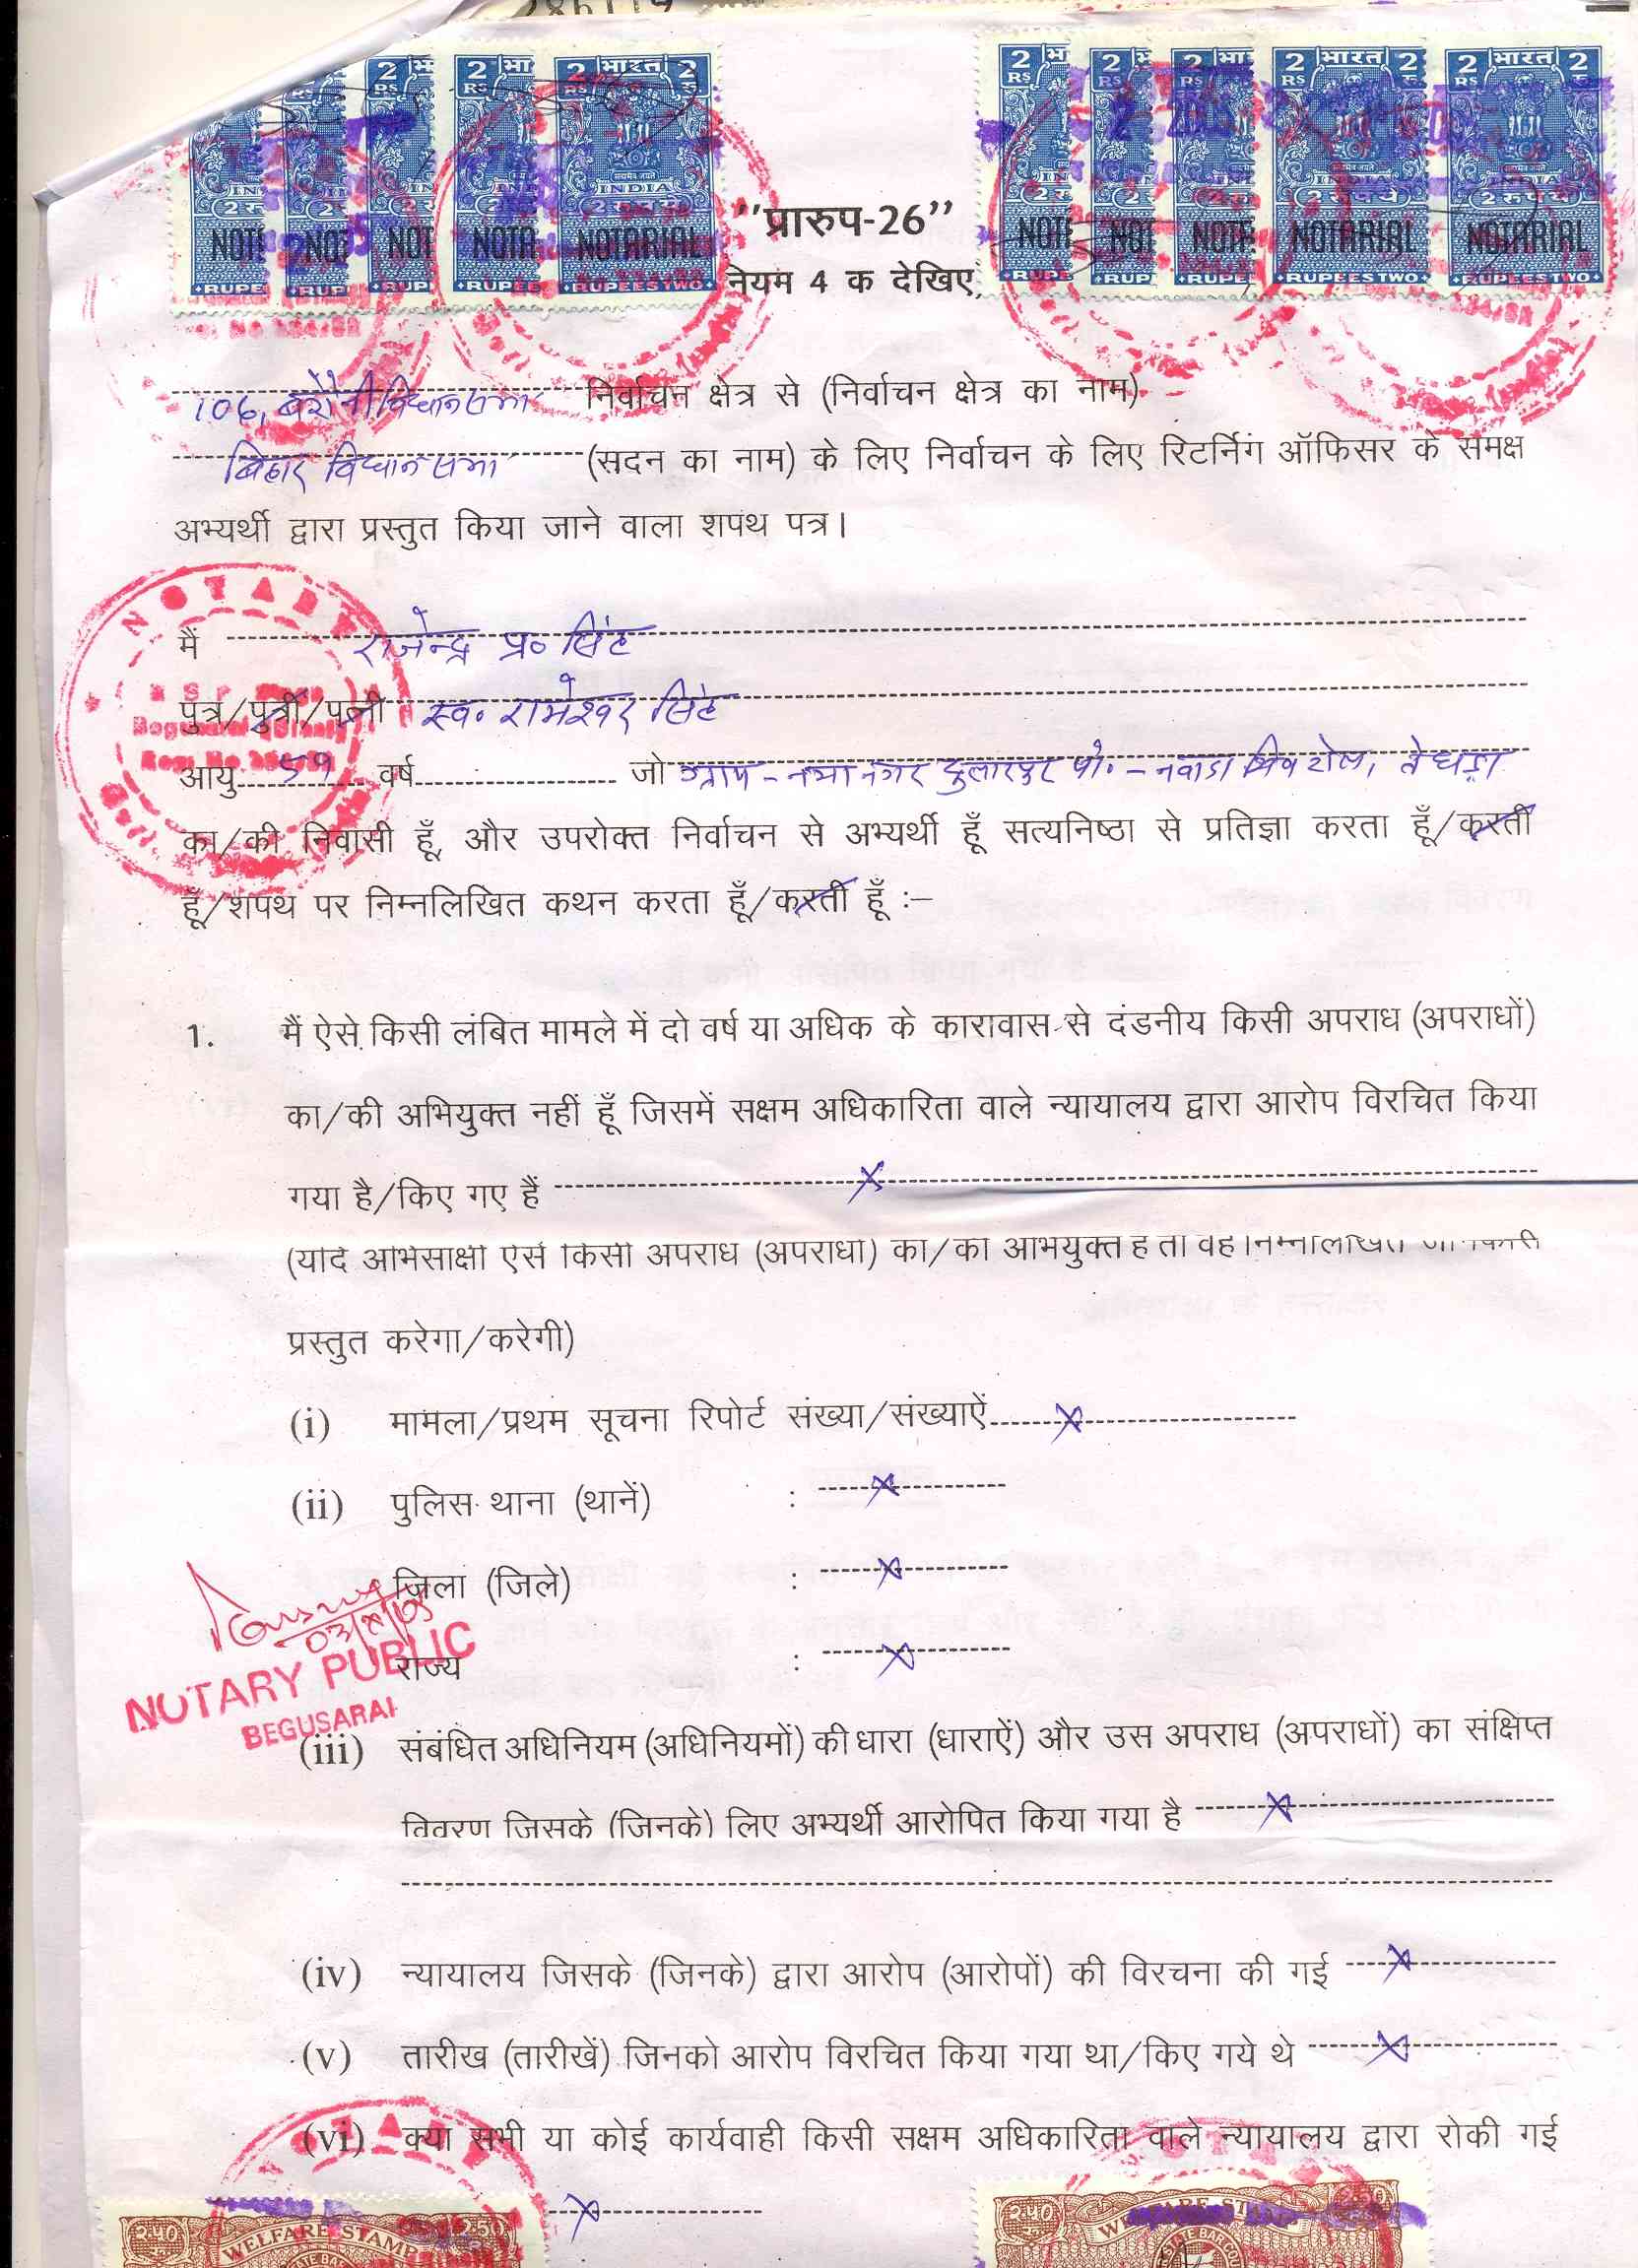 286119
2 भारत 2
RS रु
INDIA
2 रुपये
NOTARIAL
RUPEES TWO
''प्रारुप-26''
नियम 4 क देखिए
106, बरौनी विधान सभा निर्वाचन क्षेत्र से (निर्वाचन क्षेत्र का नाम)
बिहार विधान सभा (सदन का नाम) के लिए निर्वाचन के लिए रिटर्निग ऑफिसर के समक्ष
अभ्यर्थी द्वारा प्रस्तुत किया जाने वाला शपथ पत्र।
NOTARY
मैं राजेन्द्र प्र० सिंह
पुत्र/पुत्री/पत्नी स्व० रामेश्वर सिंह
आयु 59 वर्ष जो ग्राम - नयानगर दुलारपुर पो० - नवादा तेघड़ा
का/की निवासी हूँ, और उपरोक्त निर्वाचन से अभ्यर्थी हूँ सत्यनिष्ठा से प्रतिज्ञा करता हूँ/करती
हूँ/शपथ पर निम्नलिखित कथन करता हूँ/करती हूँ :–
1. मैं ऐसे किसी लंबित मामले में दो वर्ष या अधिक के कारावास से दंडनीय किसी अपराध (अपराधों)
का/की अभियुक्त नहीं हूँ जिसमें सक्षम अधिकारिता वाले न्यायालय द्वारा आरोप विरचित किया
गया है/किए गए हैं X
(यदि अभिसाक्षी ऐसे किसी अपराध (अपराधों) का/की अभियुक्त है तो वह निम्नलिखित जानकारी
प्रस्तुत करेगा/करेगी)
(i) मामला/प्रथम सूचना रिपोर्ट संख्या/संख्याऐं X
(ii) पुलिस थाना (थानें) : X
जिला (जिले) : X
राज्य : X
NOTARY PUBLIC
BEGUSARAI
(iii) संबंधित अधिनियम (अधिनियमों) की धारा (धाराऐं) और उस अपराध (अपराधों) का संक्षिप्त
विवरण जिसके (जिनके) लिए अभ्यर्थी आरोपित किया गया है X
(iv) न्यायालय जिसके (जिनके) द्वारा आरोप (आरोपों) की विरचना की गई X
(v) तारीख (तारीखें) जिनको आरोप विरचित किया गया था/किए गये थे X
(vi) क्या सभी या कोई कार्यवाही किसी सक्षम अधिकारिता वाले न्यायालय द्वारा रोकी गई
X
२.५० WELFARE STAMP 2.50
२.५० WELFARE STAMP 2.50